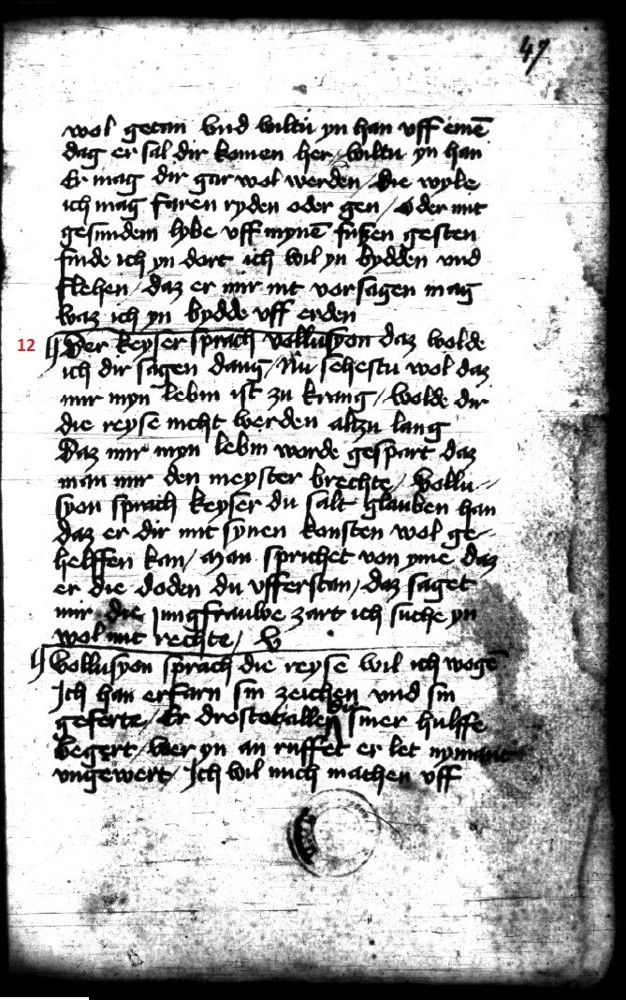 47
wol getan vnd wiltu yn han vff einē
dag er sal dir komen her / wiltu yn han
Er mag dir gar wol werden / die wyle
ich mag faren ryden oder gen / oder mit
gesundem lybe vff mynē fußen gesten
finde ich yn dort ich wil yn bydden vnd
flehen / daz er mir nit vorsagen mag
waz ich yn bydde vff erden
12 Der keyser sprach vollusyon daz wolde
ich dir sagen danġ / Nu sehestu wol daz
mir myn lebin ist zu krang / wolde dir
die reyse nicht werden altzu lang
Daz mir myn lebin worde gespart daz
man mir den meyster brechte / vollu-
syon sprach keyser du salt glauben han
daz er dir mit synen konsten wol ge-
helffen kan / man sprichet von yme daz
er die doden du vfferstan / daz saget
mir die jungfrauwe zart ich suche yn
wol mit rechte / v
vollusyon sprach die reyse wil ich wogē
Ich han erfarn sin zeichen vnd sin
geferte / Er drostet allen die siner hulffe
begert / wer yn an ruffet er let nymant
vngewert / Ich wil mich machen vff